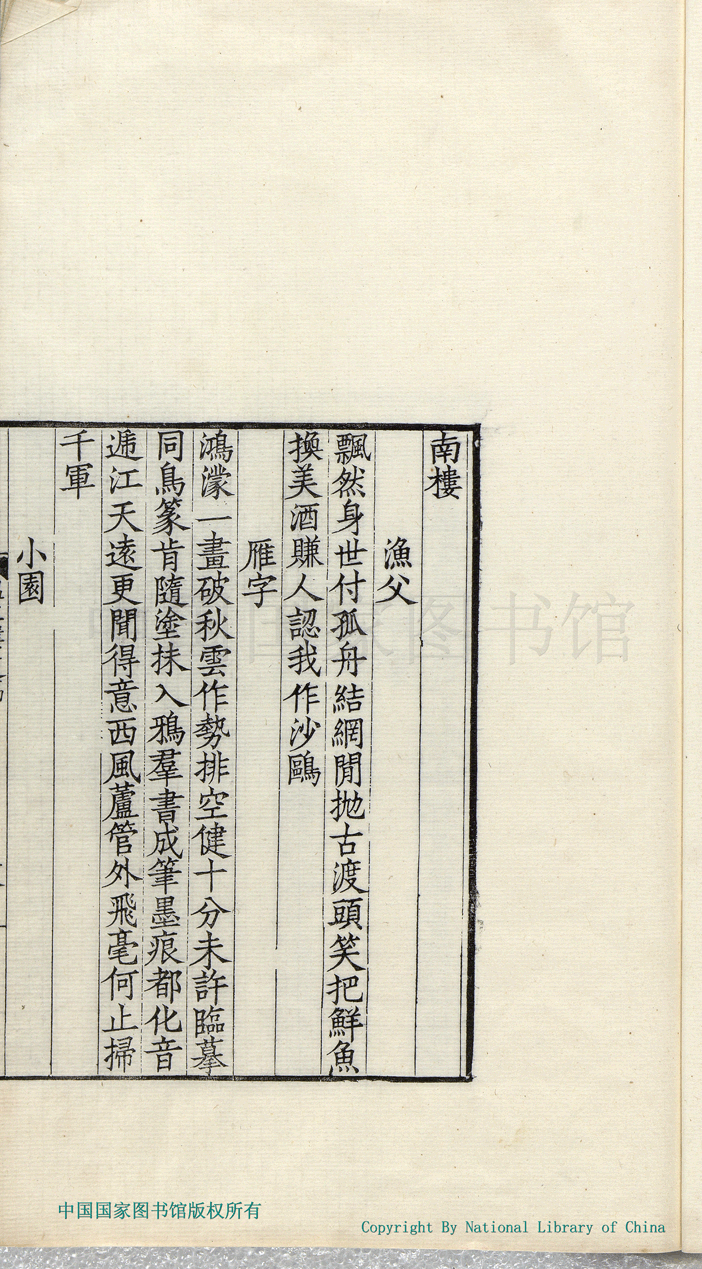 南樓
漁父
飄然身世付孤舟結網閒抛古渡頭笑把鮮魚
換美酒賺人認我作沙鷗
雁字
鴻濛一畫破秋雲作勢排空健十分未許臨摹
同鳥篆肯隨塗抹入鴉羣書成筆墨痕都化音
遞江天遠更聞得意西風蘆管外飛毫何止掃
千軍
小園
国家图书馆
中国国家图书馆版权所有
Copyright By National Library of China